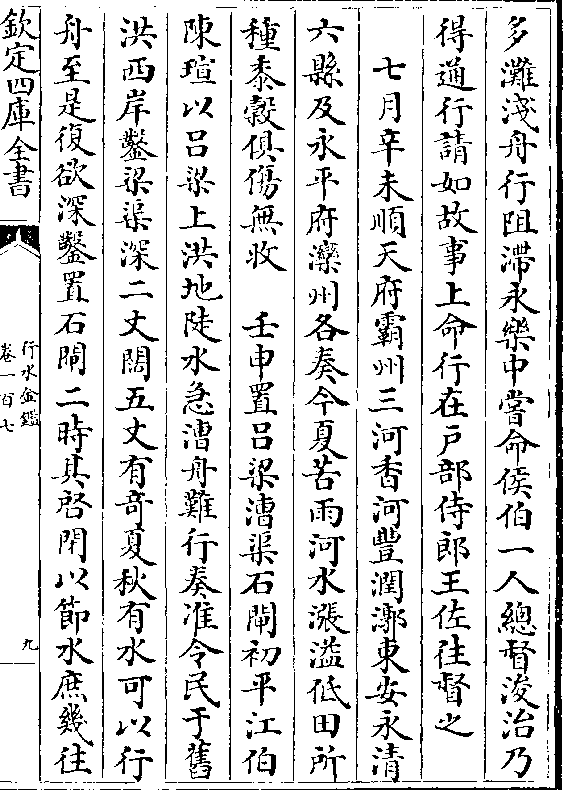 多灘淺舟行阻滯永樂中嘗命侯伯一人總督浚治乃
得通行請如故事上命行在戸部侍郎王佐往督之
七月辛未順天府霸州三河香河豐潤漷東安永清
六縣及永平府灤州各奏今夏苦雨河水漲溢低田所
種黍穀俱傷無收　壬申置吕梁漕渠石閘初平江伯
陳瑄以吕梁上洪地陡水急漕舟難行奏准令民于舊
洪西岸鑿渠渠深二丈闊五丈有竒夏秋有水可以行
舟至是復欲深鑿置石閘二時其啓閉以節水庶幾往
欽定四庫全書
行水金鑑
卷一百七
九